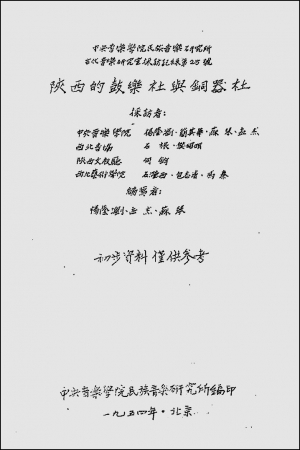 中央音樂學院民族音樂研究所
古代音樂研究室採訪記錄第25號
陝西的鼓樂社與銅器社
採訪者:
中央音樂學院 楊蔭瀏、簡其華、
西北音協 石
陝西文教廳 何鈞
西北藝術學院
編寫者:
楊蔭瀏、
初步资料 僅供參考
中央音樂學院民族音樂研究所編印
一九五四年·北京